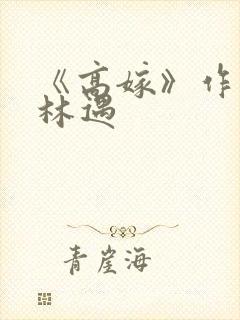 《高嫁》作
林遇
青崖海